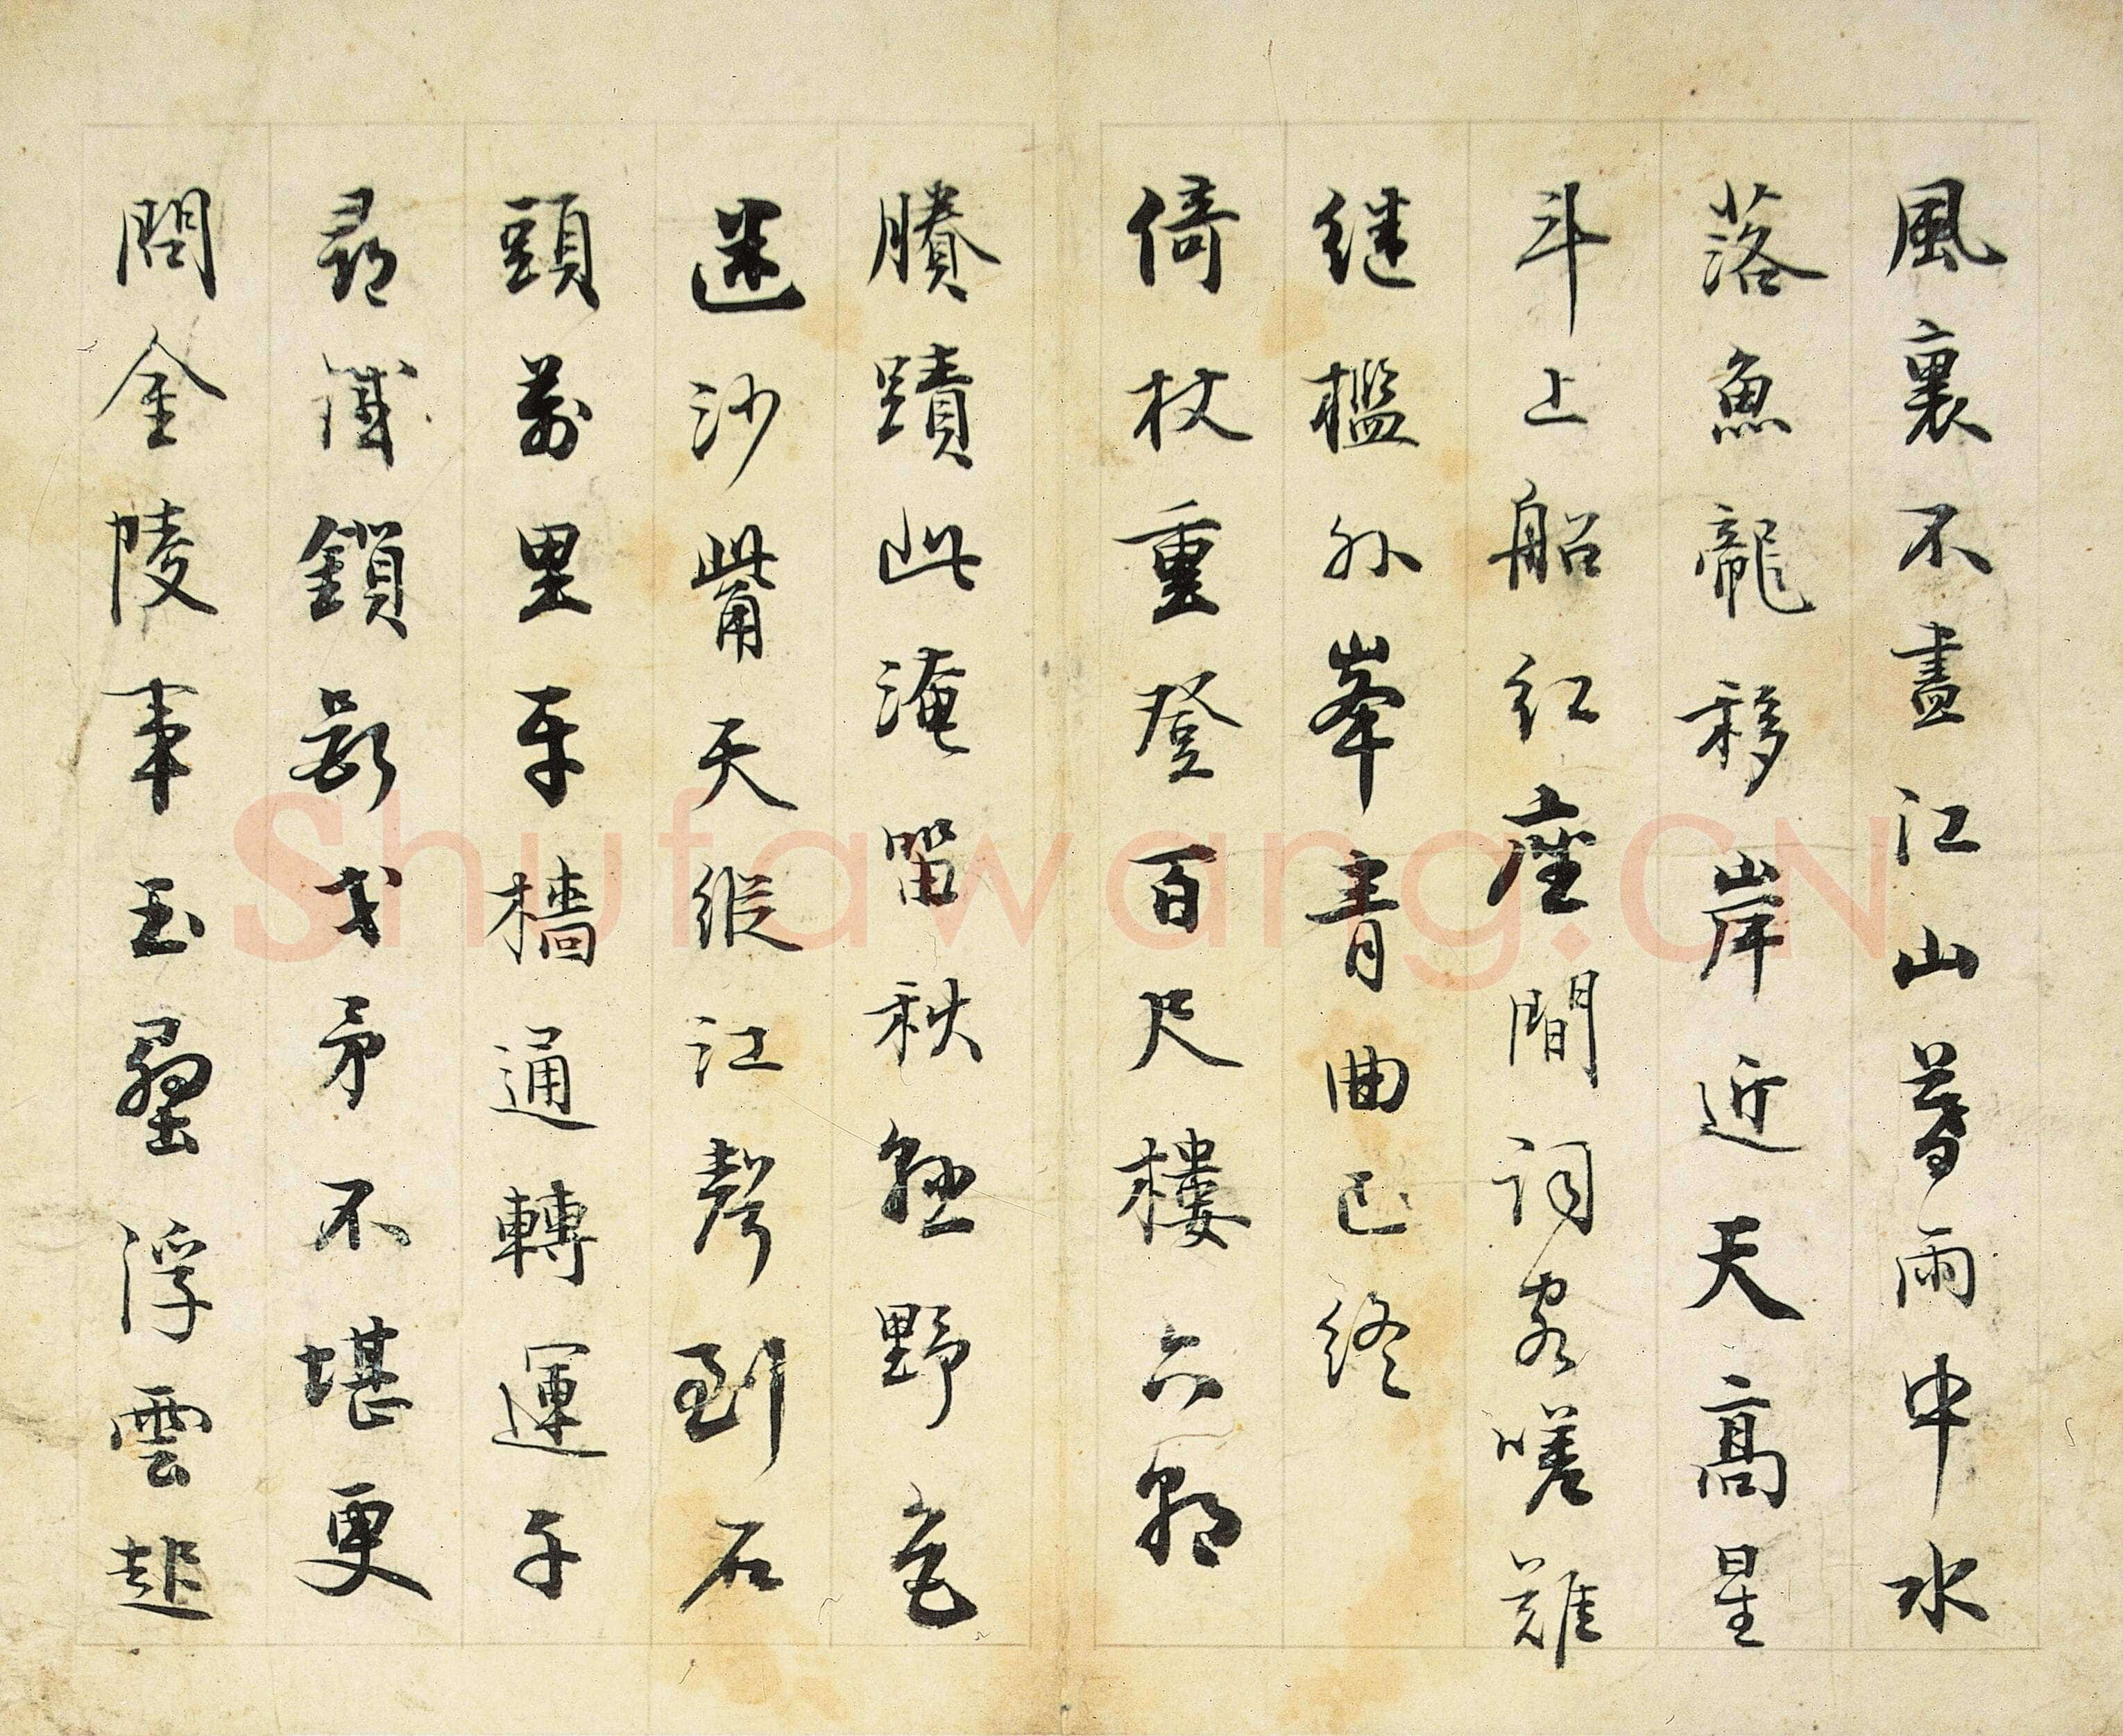 風裏不盡江山暮雨中水
落魚龍移岸近天高星
斗上船紅座間詞客嗟難
繼檻外峯青曲已終
倚杖重登百尺樓六朝
勝蹟此淹留秋無野色
迷沙觜天縱江聲到石
頭萬里牙檣通轉運千
尋鐵鎖斷戈矛不堪更
問金陵事玉壘浮雲起
Shufawang.CN